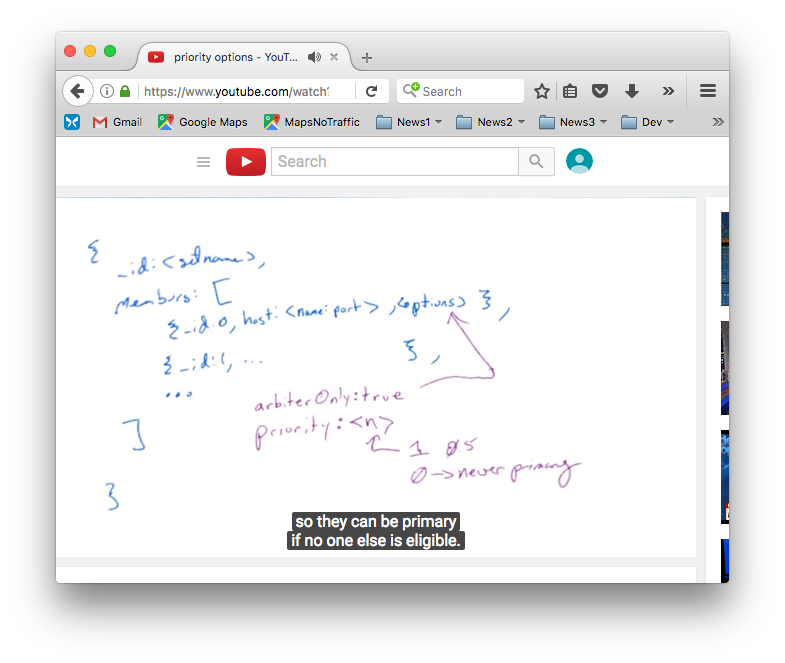 priority options - YouT...
https://www.youtube.com/watch?
Search
Gmail Google Maps MapsNoTraffic News1 News2 News3 Dev
Search
{
_id: <setname>,
members: [
{_id:0, host: <name:port>, <options> },
{_id:1, ... },
...
arbiterOnly:true
priority: <n>
]
1 0.5
0 -> never primary
}
so they can be primary
if no one else is eligible.